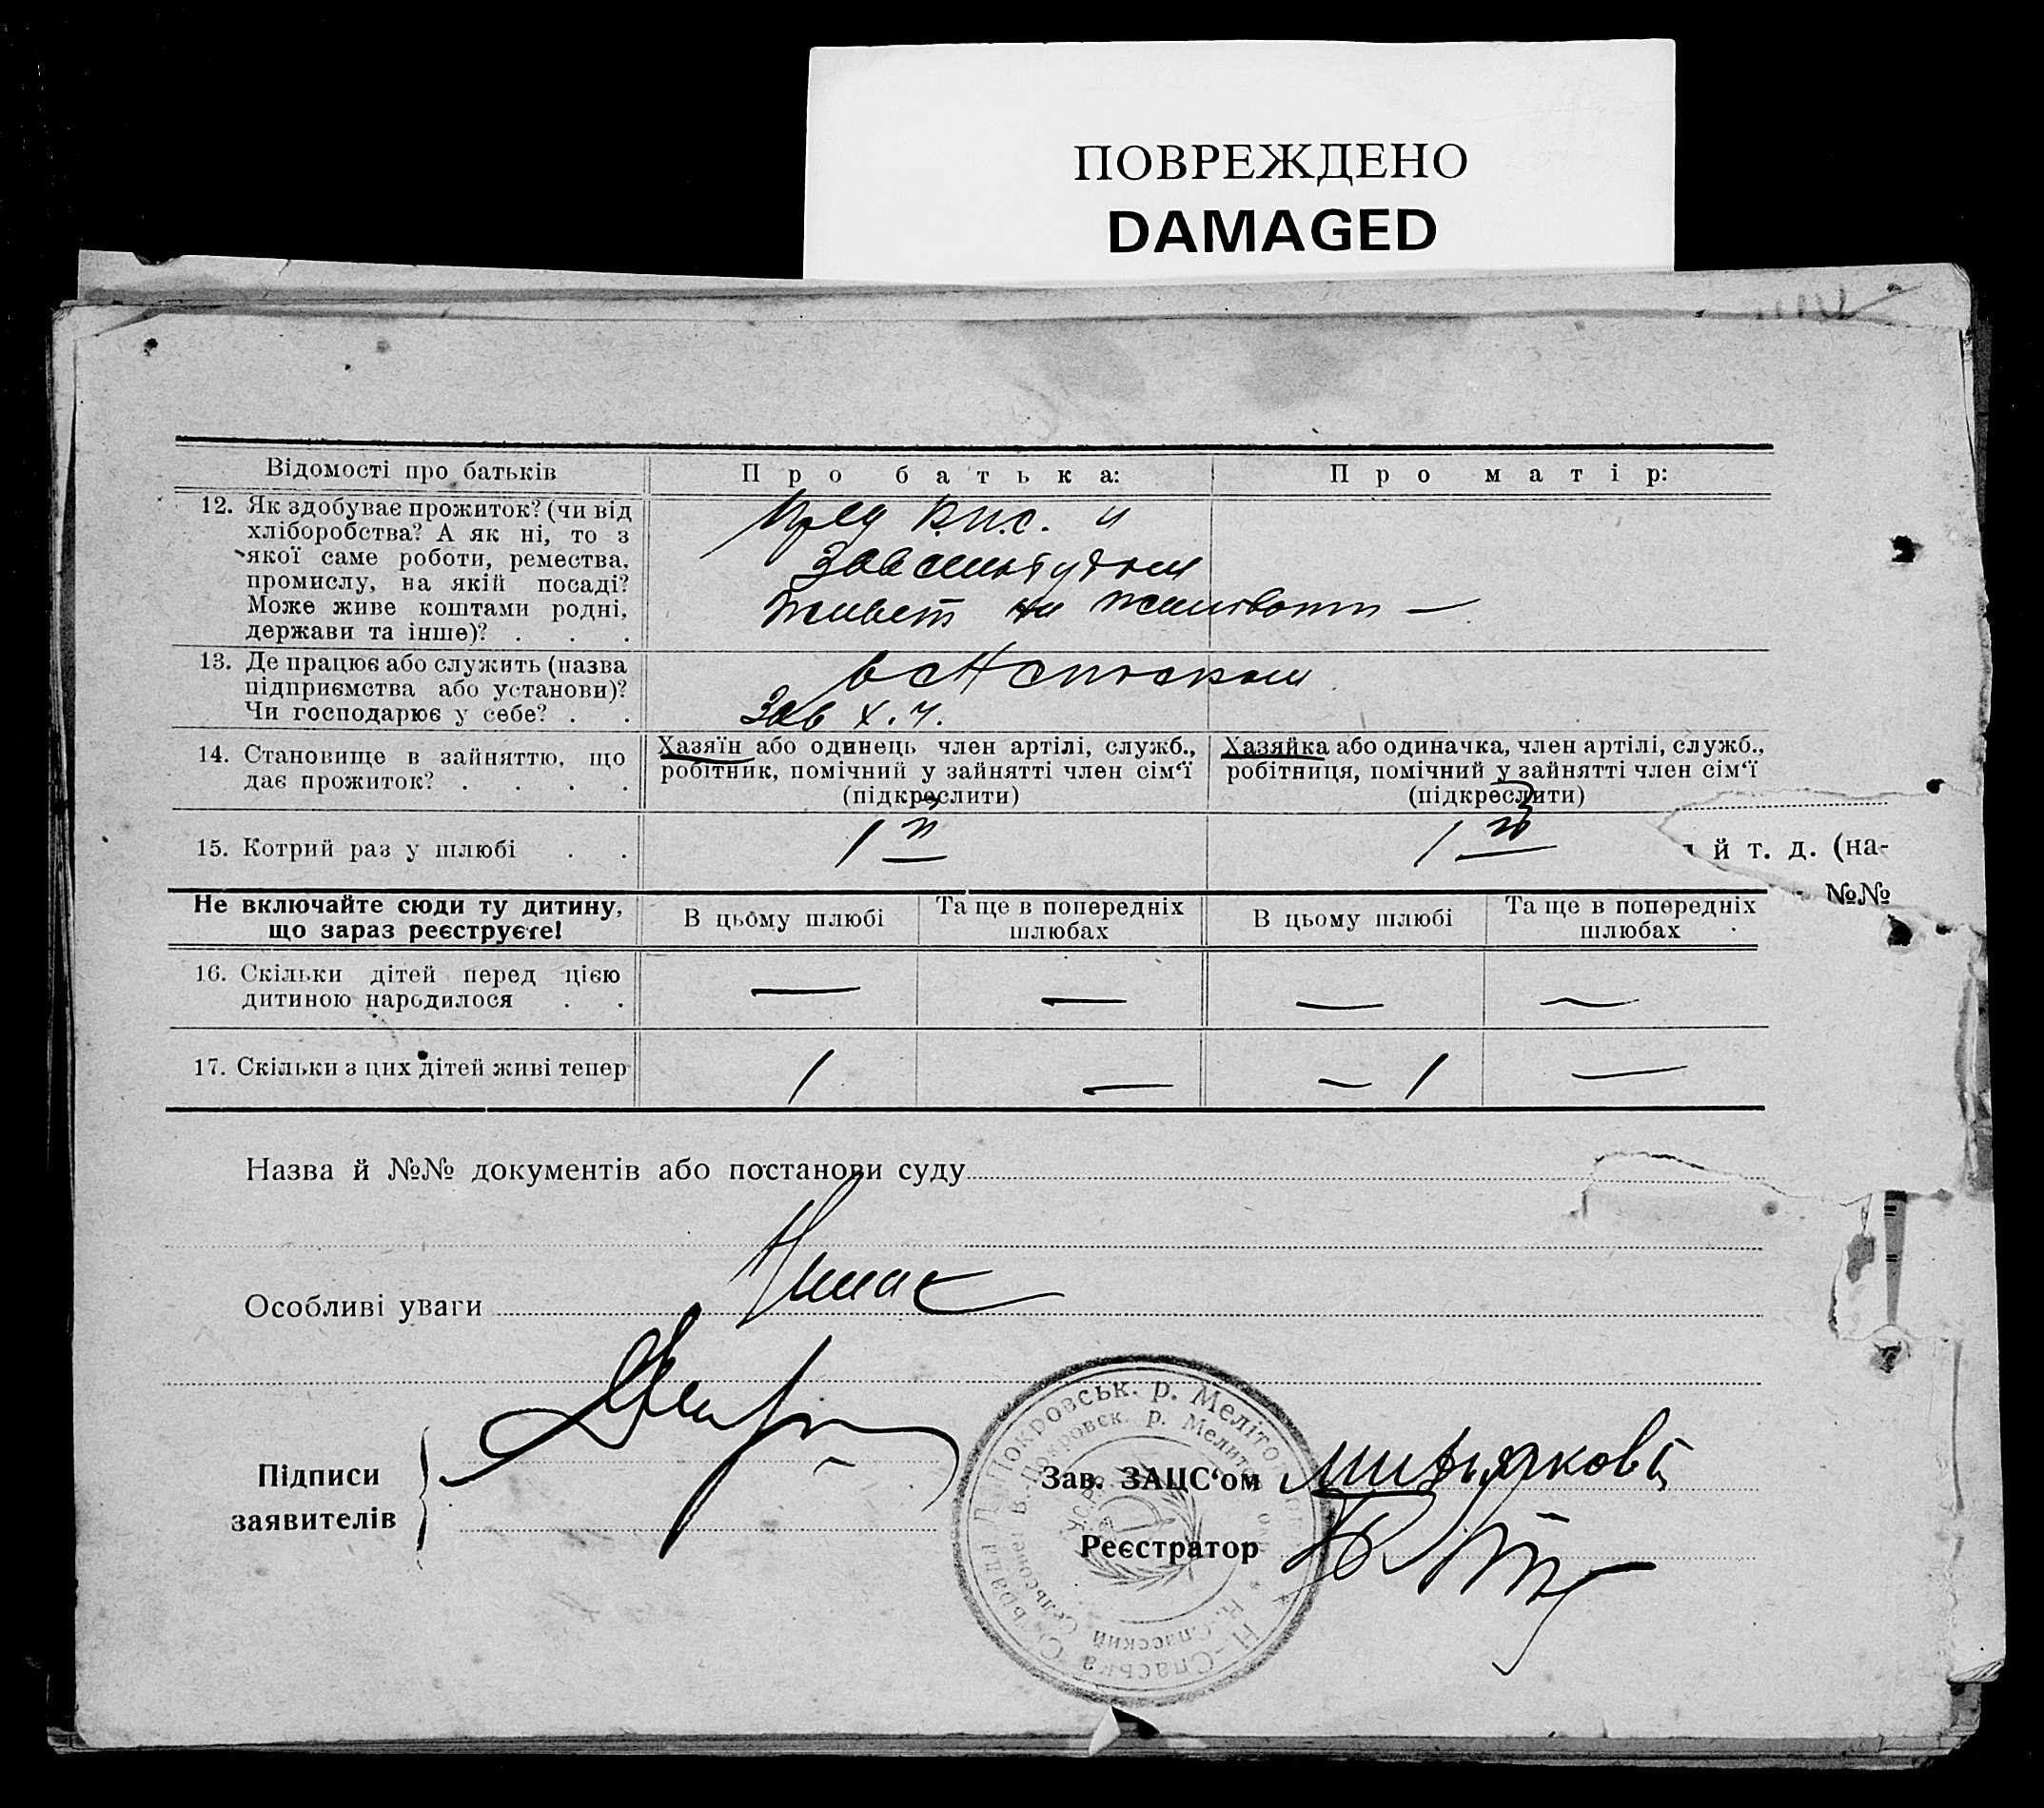 ПОВРЕЖДЕНО
DAMAGED
Відомості про батьків
Про батька:
Про матір:
12. Як здобуває прожиток? (чи від
хліборобства? А як ні, то з
якої саме роботи, ремества,
промислу, на якій посаді?
Може живе коштами родні,
держави та інше)? . . .
Пред К.Н.С. и
живет на
13. Де працює або служить (назва
підприємства або установи)?
Чи господарює у себе? . .
в Н Спаском
Зав х.ч.
14. Становище в зайняттю, що
дає прожиток? . . . .
Хазяїн або одинець член артілі, служб.,
робітник, помічний у зайнятті член сім'ї
(підкреслити)
Хазяйка або одиначка, член артілі, служб.,
робітниця, помічний у зайнятті член сім'ї
(підкреслити)
15. Котрий раз у шлюбі . .
1й
1й
й т. д. (на-
№№
Не включайте сюди ту дитину,
що зараз реєструєте!
В цьому шлюбі
Та ще в попередніх
шлюбах
В цьому шлюбі
Та ще в попередніх
шлюбах
16. Скільки дітей перед цією
дитиною народилося . .
— — — —
17. Скільки з цих дітей живі тепер
1 — — 1 —
Назва й №№ документів або постанови суду
Особливі уваги
Підписи
заявителів
Зав. ЗАЦС'ом
Реєстратор
Н.-Спаська Сільрада В.-Покровськ. р. Меліто
Н.-Спасский Сельсовет В.-Покровск. р. Мелитоп.